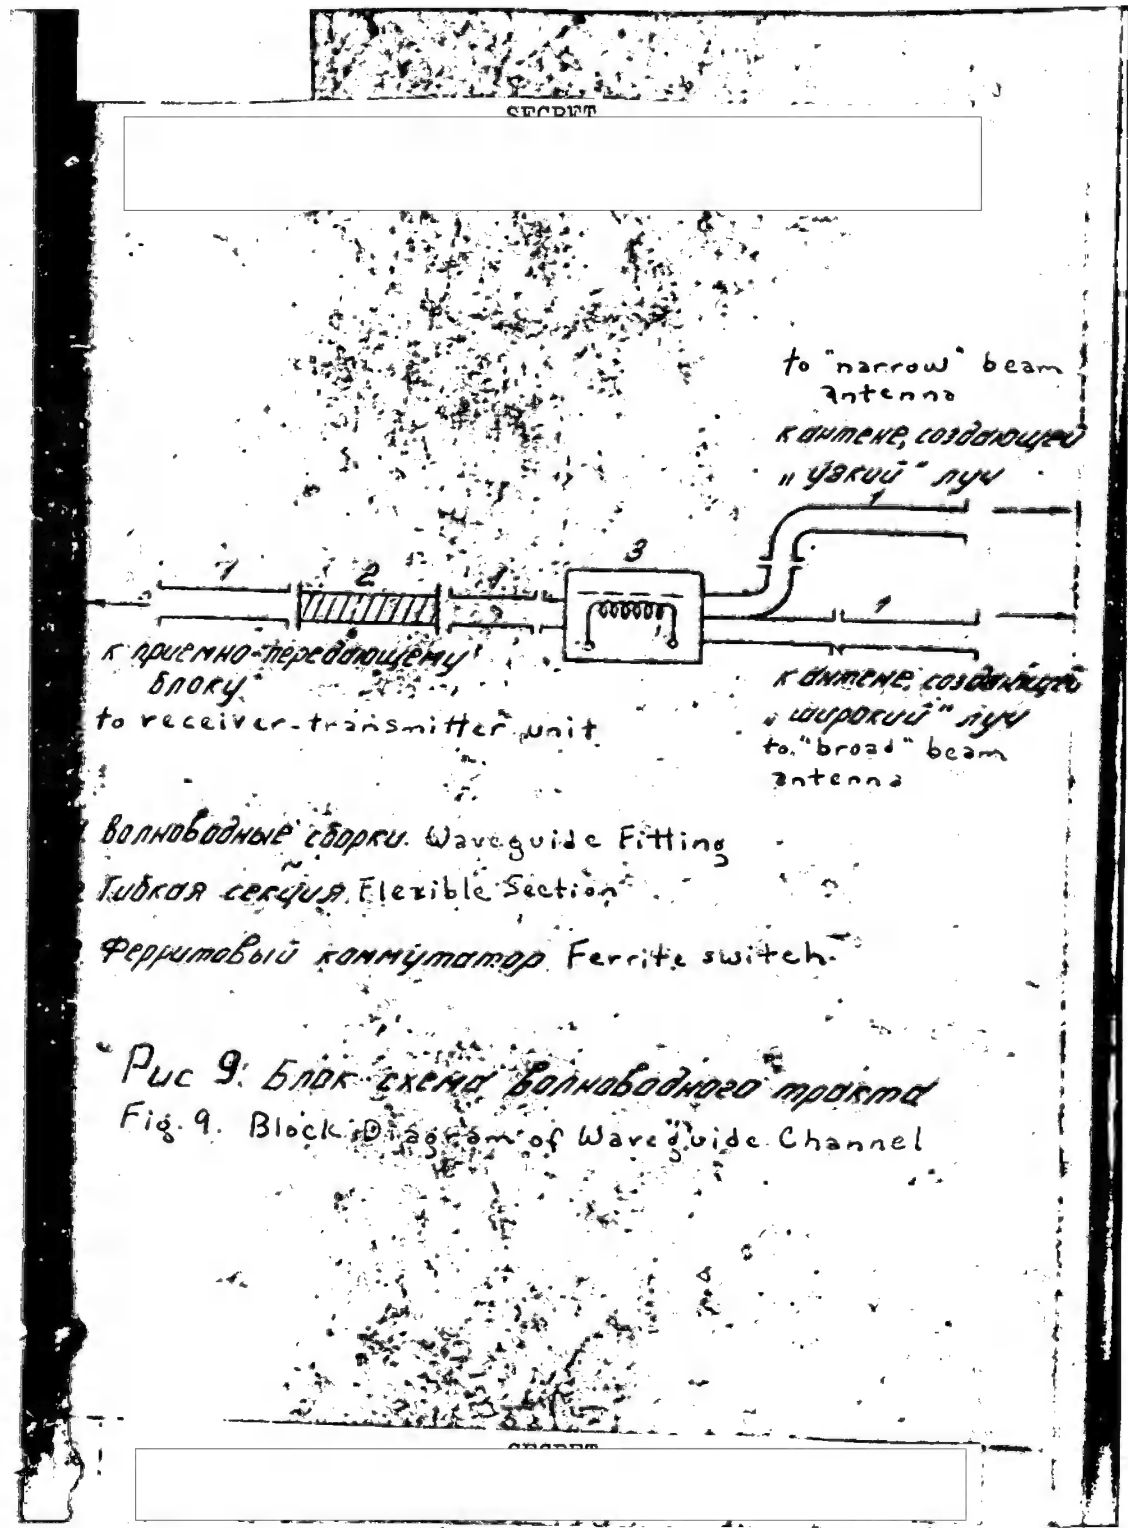 SECRET
to "narrow" beam
antenna
к антене, создающей
„узкий" луч
1
3
1 2 1
1
к приемно-передающему
блоку
to receiver-transmitter unit
к антене, создающей
„широкий" луч
to "broad" beam
antenna
Волноводные сборки. Waveguide Fitting
Гибкая секция. Flexible Section
Ферритовый коммутатор. Ferrite switch
Рис 9. Блок схема волноводного тракта
Fig. 9. Block Diagram of Waveguide Channel
SECRET